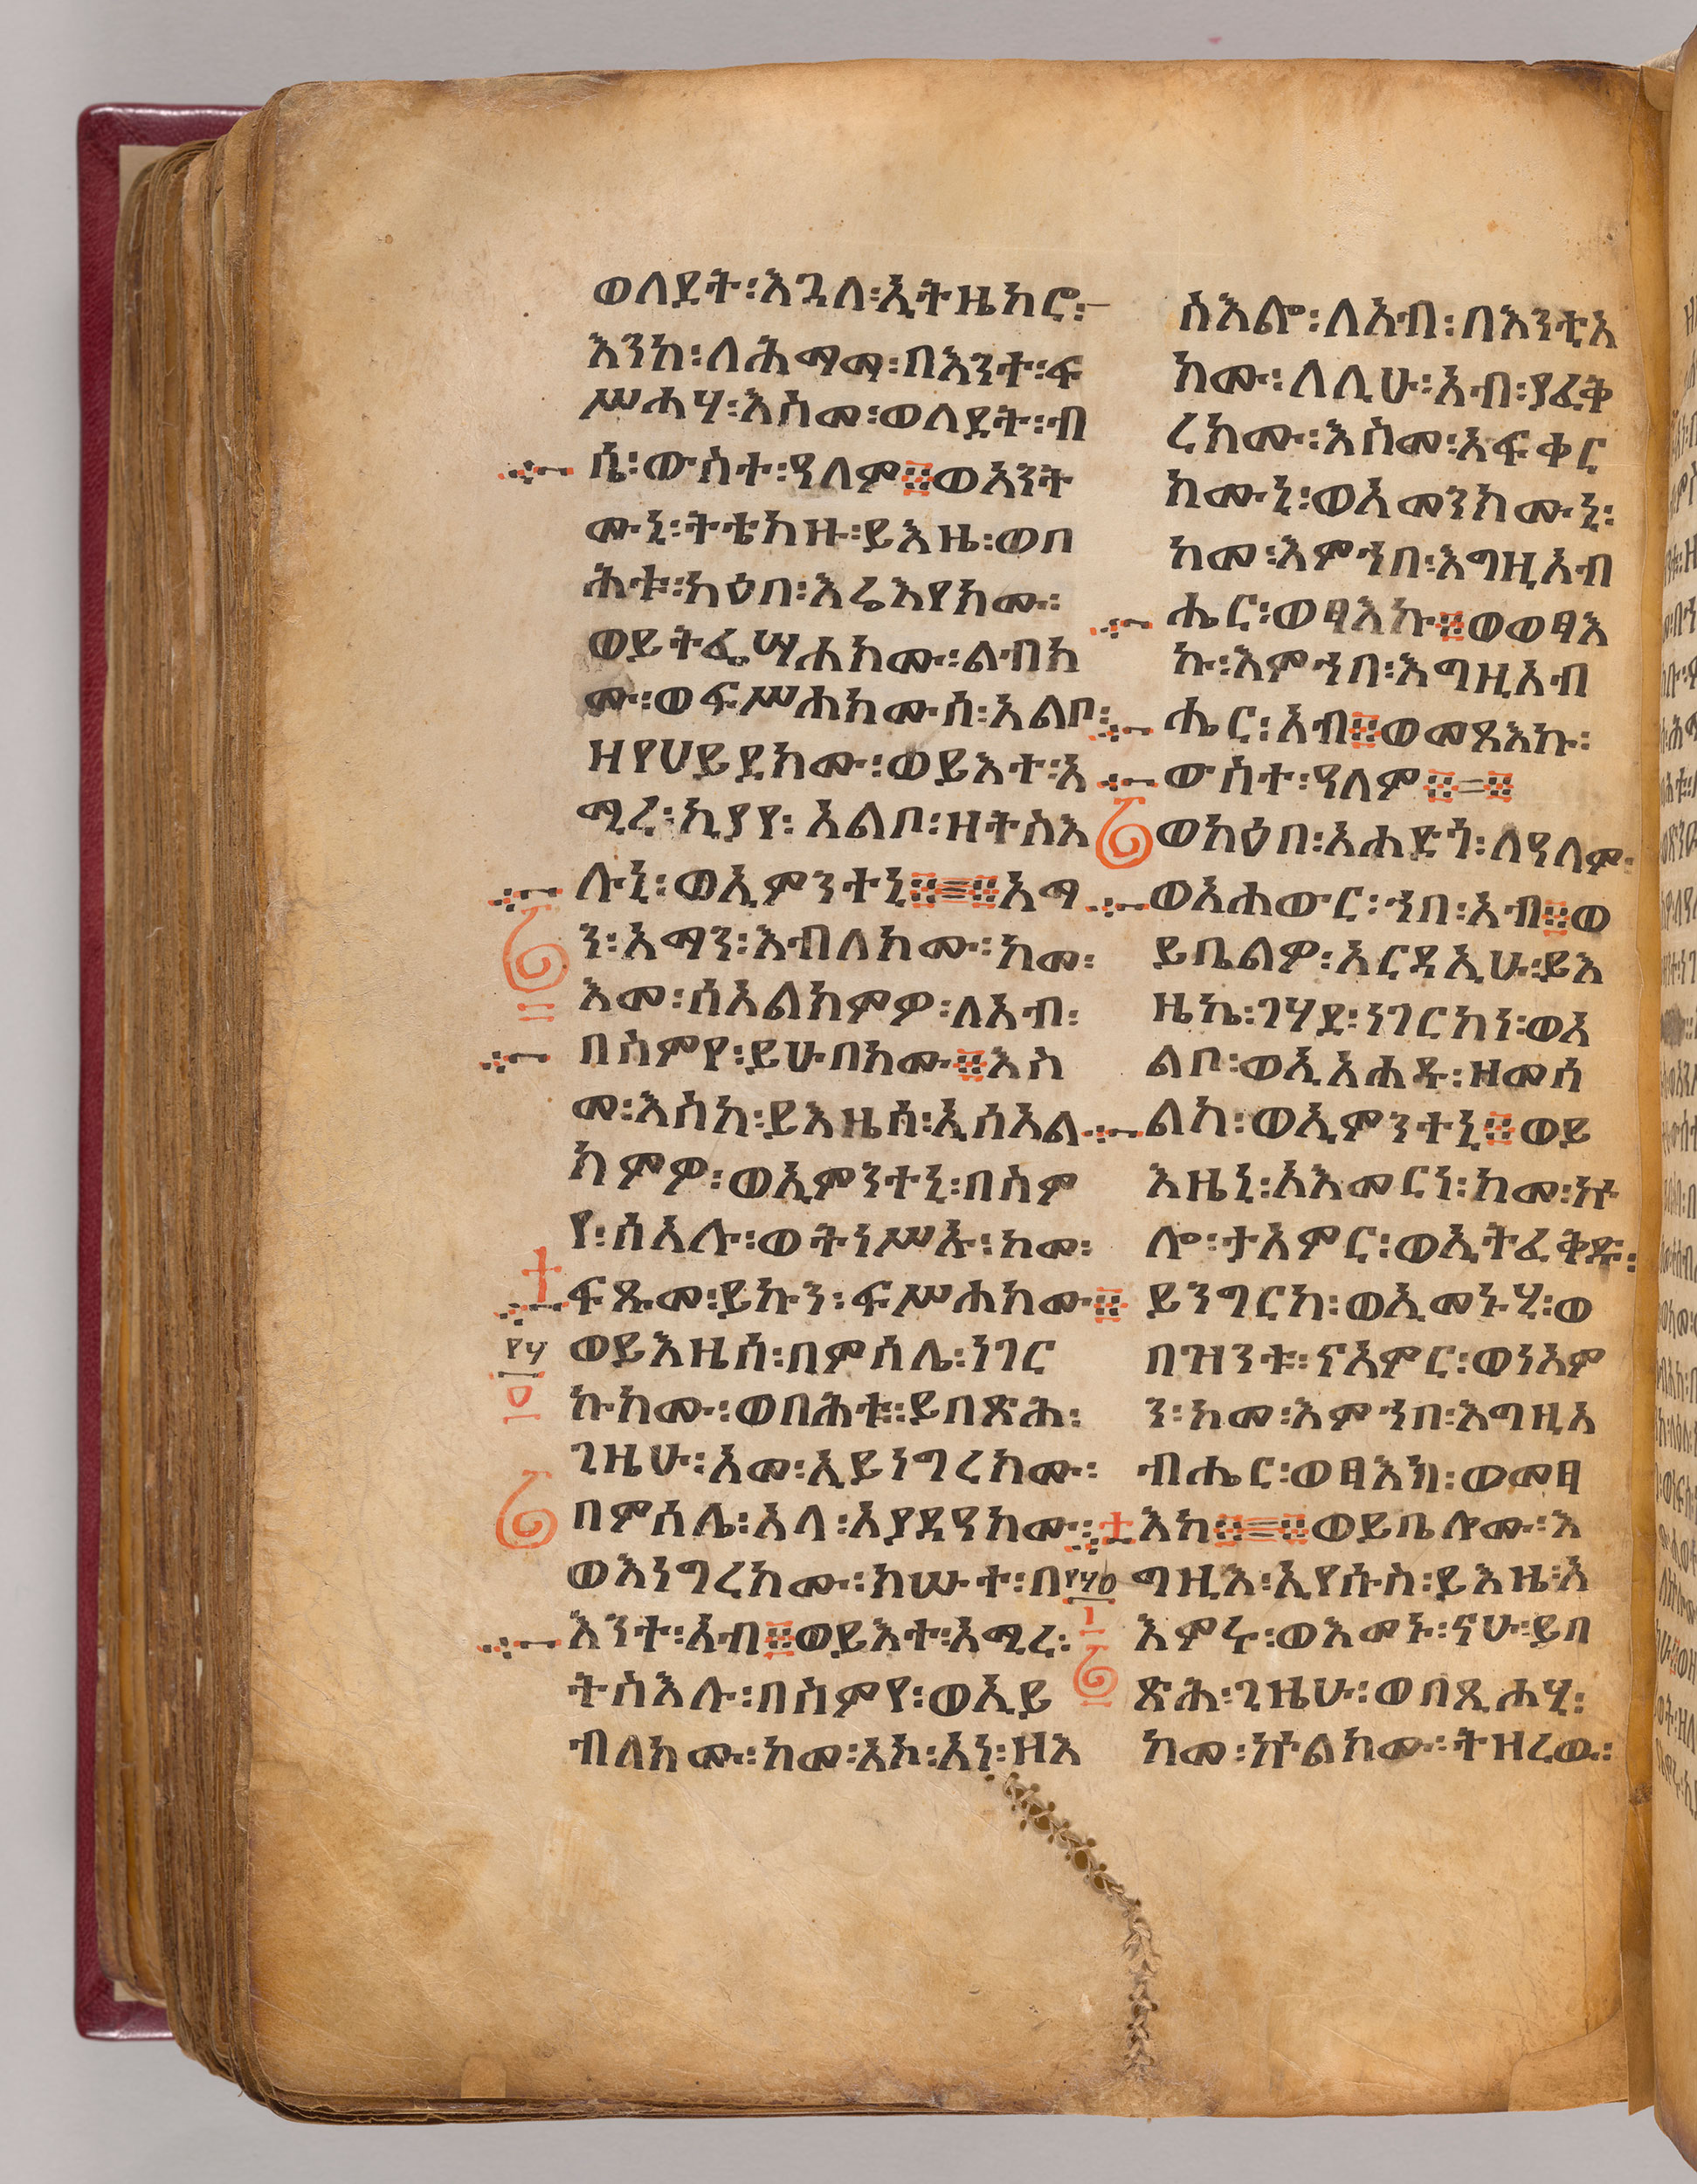 ወለደት፡እጓለ፡ኢትዜከሮ፡
እንከ፡ለሕማማ፡በእንተ፡ፍ
ሥሐሃ፡እስመ፡ወለደት፡ብ
ሴ፡ውስተ፡ዓለም፨ወአንት
ሙኒ፡ትቴክዙ፡ይእዜ፡ወባ
ሕቱ፡ካዕበ፡እሬእየክሙ፡
ወይትፌሣሐክሙ፡ልብክ
ሙ፡ወፍሥሐክሙሰ፡አልቦ፡
ዘየሀይደክሙ፡ወይእተ፡አ
ሚረ፡ኪያየ፡አልቦ፡ዘትስእ
ሉኒ፡ወኢምንተኒ፨=፨አማ
ን፡አማን፡እብለክሙ፡ከመ፡
እመ፡ሰአልክምዎ፡ለአብ፡
በስምየ፡ይሁበክሙ፨እስ
መ፡እስከ፡ይእዜሰ፡ኢሰአል
ክምዎ፡ወኢምንተኒ፡በስም
የ፡ሰአሉ፡ወትነሥኡ፡ከመ፡
ፍጹመ፡ይኩን፡ፍሥሐክሙ፨
ወይእዜሰ፡በምሳሌ፡ነገር
ኩክሙ፡ወባሕቱ፡ይበጽሕ፡
ጊዜሁ፡አመ፡ኢይነግረክሙ፡
በምሳሌ፡አላ፡አያዳዓክሙ፡
ወእነግረክሙ፡ክሡተ፡በ
እንተ፡አብ፨ወይእተ፡አሚረ፡
ትስእሉ፡በስምየ፡ወኢይ
ብለክሙ፡ከመ፡አኮ፡አነ፡ዘእ
ስእሎ፡ለአብ፡በእንቲአ
ክሙ፡ለሊሁ፡አብ፡ያፈቅ
ረክሙ፡እስመ፡አፍቀር
ክሙኒ፡ወአመንክሙኒ፡
ከመ፡እምኀበ፡እግዚአብ
ሔር፡ወፃእኩ፨ወወፃእ
ኩ፡እምኀበ፡እግዚአብ
ሔር፡አብ፨ወመጻእኩ፡
ውስተ፡ዓለም፨=፨
ወካዕበ፡አሐድጎ፡ለዓለም፡
ወአሐውር፡ኀበ፡አብ፨ወ
ይቤልዎ፡አርዳኢሁ፡ይእ
ዜኬ፡ገሃደ፡ነገርከነ፡ወአ
ልቦ፡ወኢአሐዱ፡ዘመሰ
ልከ፡ወኢምንተኒ፨ወይ
እዜኒ፡አእመርነ፡ከመ፡ኵ
ሎ፡ታአምር፡ወኢትፈቅድ፡
ይንግርከ፡ወኢመኑሂ፡ወ
በዝንቱ፡ናአምር፡ወነአም
ን፡ከመ፡እምኀበ፡እግዚአ
ብሔር፡ወፃእከ፡ወመፃ
እከ፨=፨ወይቤሎሙ፡እ
ግዚእ፡ኢየሱስ፡ይእዜ፡አ
እምሩ፡ወእመኑ፡ናሁ፡ይበ
ጽሕ፡ጊዜሁ፡ወበጺሐሂ፡
ከመ፡ኵልክሙ፡ትዘረዉ፡